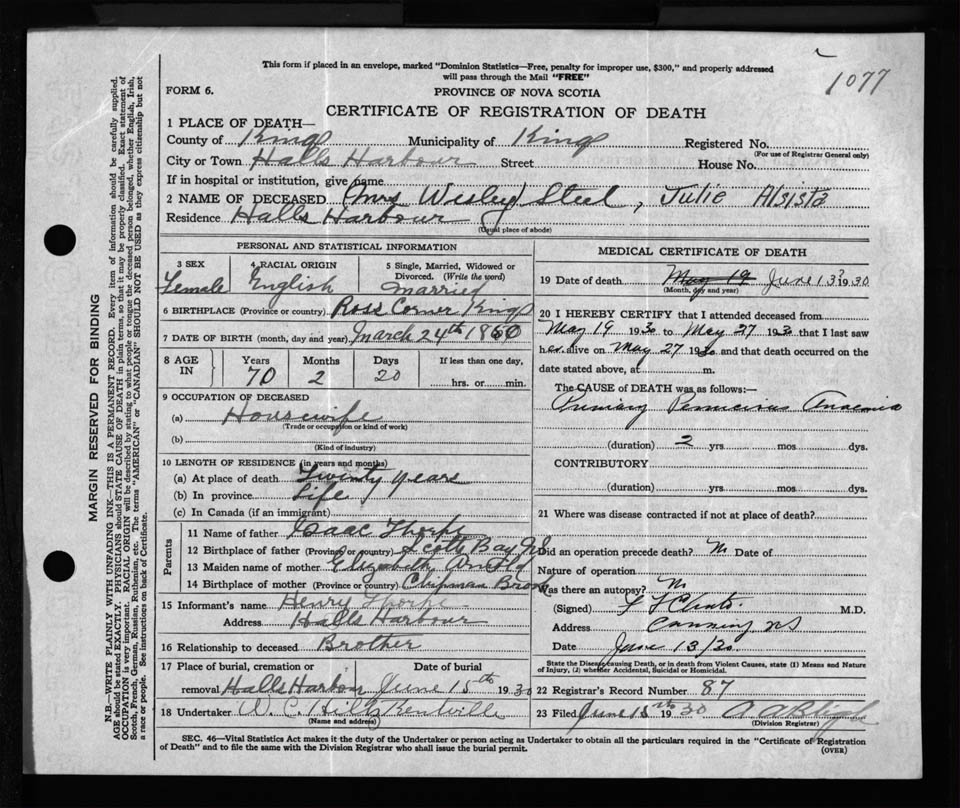 This form if placed in an envelope, marked "Dominion Statistics—Free, penalty for improper use, $300," and properly addressed
will pass through the Mail "FREE"
1077
FORM 6.
PROVINCE OF NOVA SCOTIA
CERTIFICATE OF REGISTRATION OF DEATH
1 PLACE OF DEATH—
County of Kings Municipality of Kings Registered No.
(For use of Registrar General only)
City or Town Halls Harbour Street House No.
If in hospital or institution, give name
2 NAME OF DECEASED (Mrs Wesley) Steel, Julie Alsista
Residence Halls Harbour
(Usual place of abode)
PERSONAL AND STATISTICAL INFORMATION
3 SEX Female
4 RACIAL ORIGIN English
5 Single, Married, Widowed or
Divorced. (Write the word)
Married
6 BIRTHPLACE (Province or country) Ross Corner Kings
7 DATE OF BIRTH (month, day and year) March 24th 1860
8 AGE IN
Years 70 Months 2 Days 20
If less than one day,
hrs. or min.
9 OCCUPATION OF DECEASED
(a) Housewife
(Trade or occupation or kind of work)
(b)
(Kind of industry)
10 LENGTH OF RESIDENCE (in years and months)
(a) At place of death Twenty years
(b) In province Life
(c) In Canada (if an immigrant)
Parents
11 Name of father Isaac Thorpe
12 Birthplace of father (Province or country) Scotts Bay NS
13 Maiden name of mother Elizabeth Arnold
14 Birthplace of mother (Province or country) Chipman Brook
15 Informant's name Henry Thorpe
Address Halls Harbour
16 Relationship to deceased Brother
17 Place of burial, cremation or
removal Halls Harbour
Date of burial
June 15th 1930
18 Undertaker W. C. Hiltz Kentville
(Name and address)
MEDICAL CERTIFICATE OF DEATH
19 Date of death May 19 June 13 1930
(Month, day and year)
20 I HEREBY CERTIFY that I attended deceased from
May 19 1930 to May 27 1930 that I last saw
her alive on May 27 1930 and that death occurred on the
date stated above, at m.
The CAUSE OF DEATH was as follows:—
Primary Pernicious Anaemia
(duration) 2 yrs. mos. dys.
CONTRIBUTORY
(duration) yrs. mos. dys.
21 Where was disease contracted if not at place of death?
Did an operation precede death? No Date of
Nature of operation
Was there an autopsy? No
(Signed) M.D.
Address Canning NS
Date June 13/30
State the Disease causing Death, or in death from Violent Causes, state (1) Means and Nature
of Injury, (2) whether Accidental, Suicidal or Homicidal.
22 Registrar's Record Number 87
23 Filed June 15th 1930
(Division Registrar)
SEC. 46—Vital Statistics Act makes it the duty of the Undertaker or person acting as Undertaker to obtain all the particulars required in the "Certificate of Registration
of Death" and to file the same with the Division Registrar who shall issue the burial permit.
(OVER)
MARGIN RESERVED FOR BINDING
N.B.—WRITE PLAINLY WITH UNFADING INK—THIS IS A PERMANENT RECORD. Every item of information should be carefully supplied.
AGE should be stated EXACTLY. PHYSICIANS should STATE CAUSE OF DEATH in plain terms, so that it may be properly classified. Exact statement of
OCCUPATION is very important. RACIAL ORIGIN will be described by stating to what people or tongue the deceased person belonged, whether English, Irish,
Scotch, French, German, Russian, Ruthenian, etc. The terms "AMERICAN" or "CANADIAN" SHOULD NOT BE USED as they express citizenship but not
a race or people. See instructions on back of Certificate.